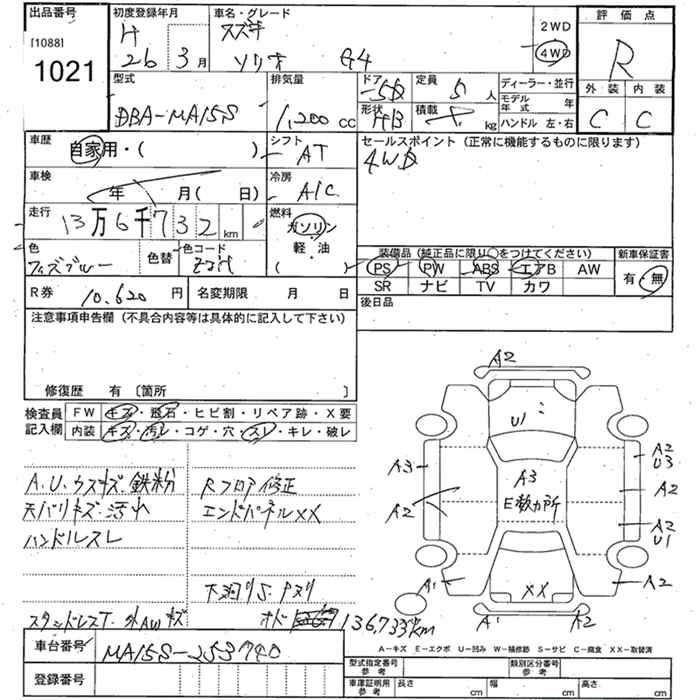 出品番号 初度登録年月 車名・グレード 評価点
[1088] H スズキ 2WD
1021 26年 3月 ソリオ G4 4WD R
型式 排気量 ドア 定員 ディーラー・並行 外装 内装
DBA-MA15S 1,200 cc 5D 5人 モデル年式 年 C C
形状 HB 積載 kg ハンドル 左・右
車歴 シフト セールスポイント (正常に機能するものに限ります)
自家用・( ) AT 4WD
車検 冷房
年 月( 日) A/C
走行 燃料
13万6千732km ガソリン
軽・油
( )
色 色替 色コード 装備品 (純正品に限り○をつけてください) 新車保証書
ブルー PS PW ABS エアB AW 有・無
SR ナビ TV カワ
R券 10,620円 名変期限 月 日 後日品
注意事項申告欄 (不具合内容等は具体的に記入して下さい)
修復歴 有 〔箇所 〕
検査員 FW キズ・飛石・ヒビ割・リペア跡・X要
記入欄 内装 キズ・汚れ・コゲ・穴・スレ・キレ・破レ
A.U.ウスキズ.鉄粉 Rフロア修正
天バリキズ.汚れ エンドパネルXX
ハンドルスレ
下廻りS.
外AWキズ
136,733km
車台番号 MA15S-253740
登録番号
A2
U1
A3 A2
U3
A3
E数カ所
A2 A2
A2
U1
A1 XX A2
A1 A2
A-キズ E-エクボ U-凹み W-補修跡 S-サビ C-腐食 XX-取替済
型式指定番号 参考 類別区分番号 参考
車庫証明用 参考 長さ cm 幅 cm 高さ cm